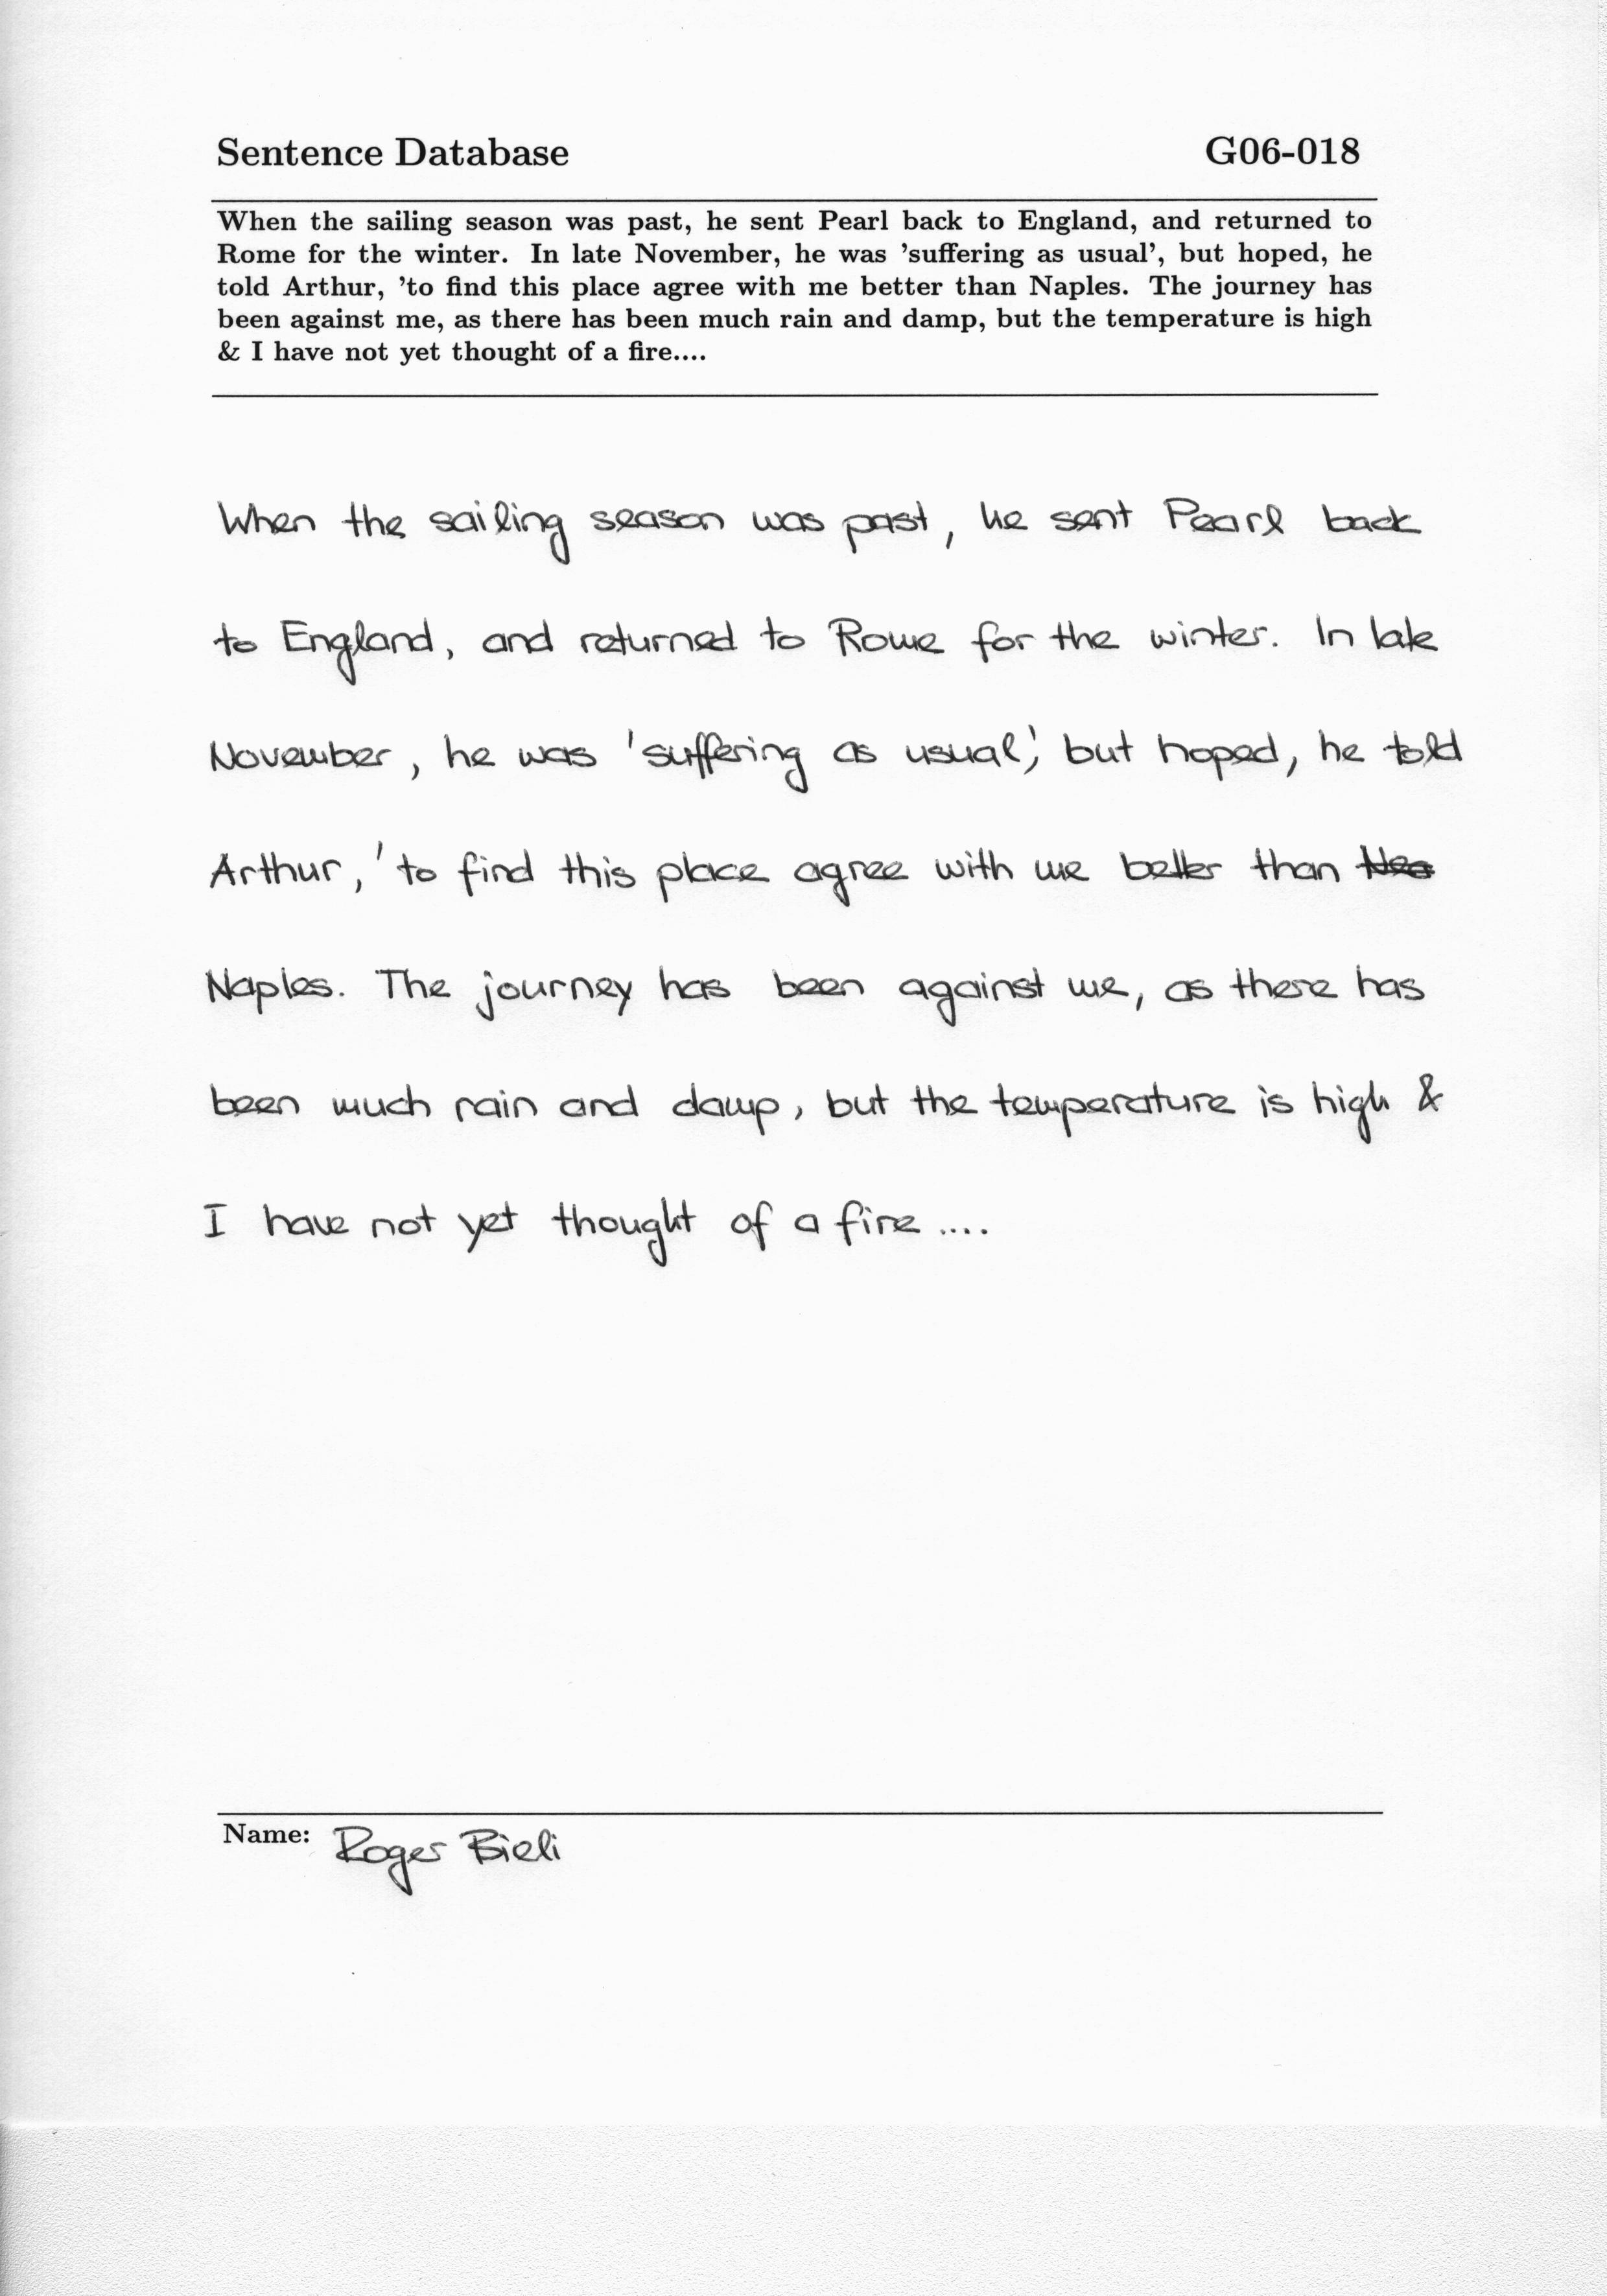 Sentence Database G06-018
When the sailing season was past, he sent Pearl back to England, and returned to
Rome for the winter. In late November, he was 'suffering as usual', but hoped, he
told Arthur, 'to find this place agree with me better than Naples. The journey has
been against me, as there has been much rain and damp, but the temperature is high
& I have not yet thought of a fire....
When the sailing season was past, he sent Pearl back
to England, and returned to Rome for the winter. In late
November, he was 'suffering as usual', but hoped, he told
Arthur, 'to find this place agree with me better than
Naples. The journey has been against me, as there has
been much rain and damp, but the temperature is high &
I have not yet thought of a fire ....
Name: Roger Bieli